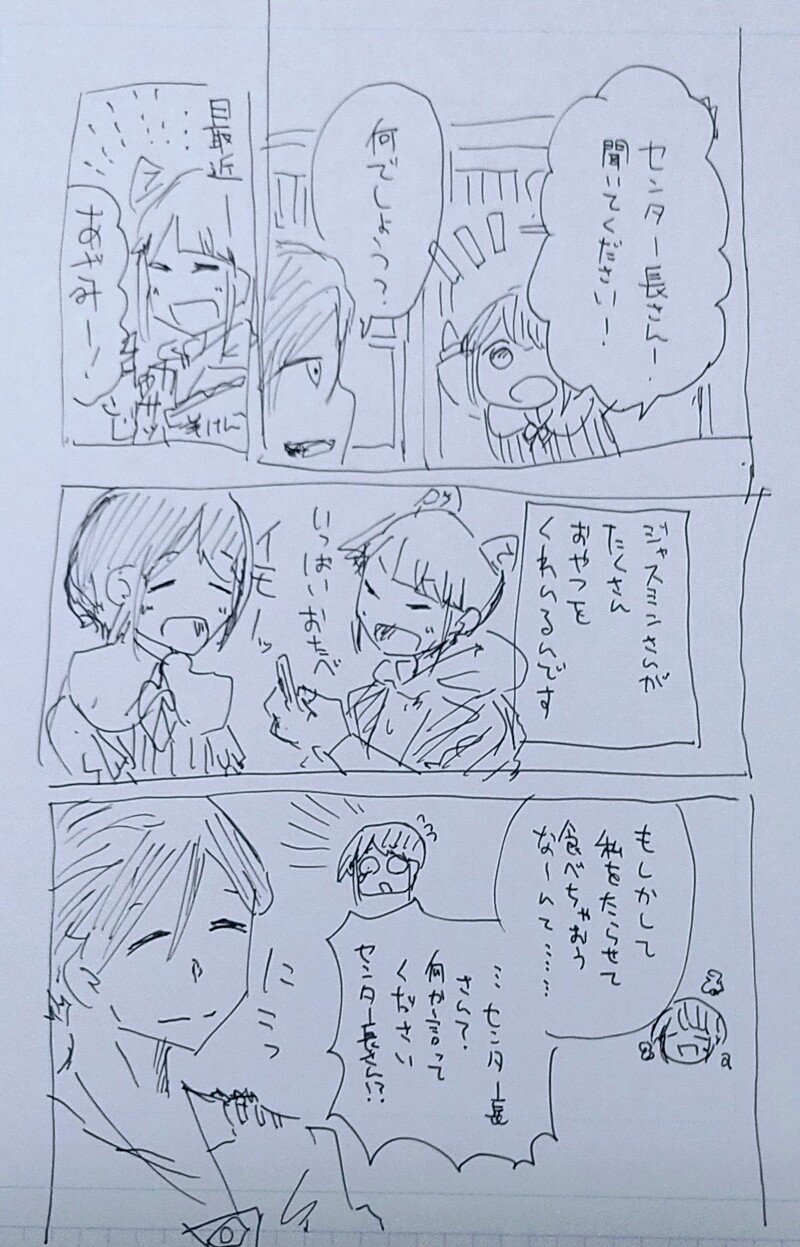 センター長さんー!
聞いてくださいー!
何でしょう?
最近
あざみー!
ジャスミンさんが
たくさん
おやつを
くれいるんです
いっぱいおたべ
イモーッ
もしかして
私をたらせて
食べちゃおう
なーんて……
…センター長
さんて?
何か言って
ください
センター長さん!?
にこっ